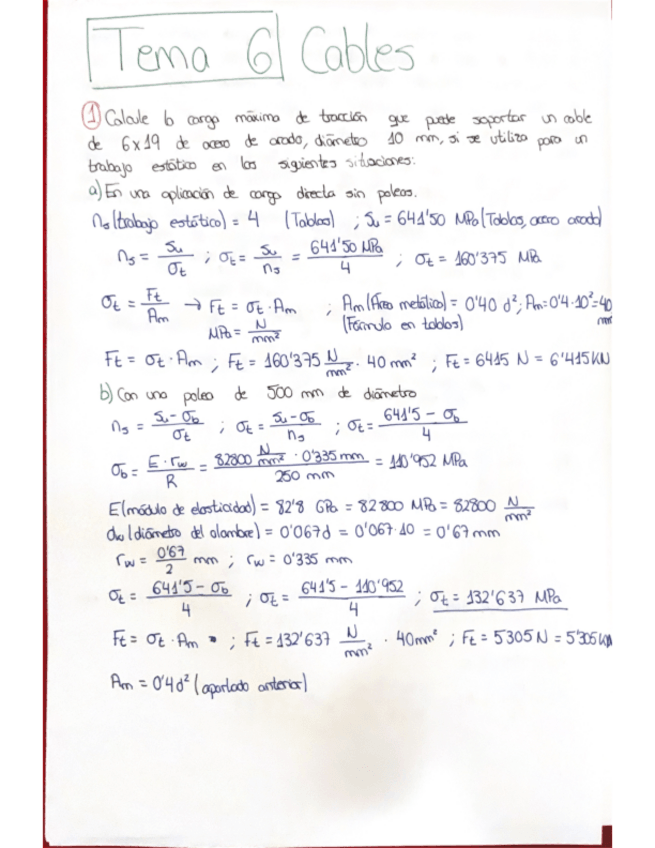 Tema 6 Cables
1 Calcule la carga máxima de tracción que puede soportar un cable
de 6x19 de acero de arado, diámetro 10 mm, si se utiliza para un
trabajo estático en las siguientes situaciones:
a) En una aplicación de carga directa sin poleas.
ns (trabajo estático) = 4 (Tablas) ; Su = 641'50 MPa (Tablas, acero arado)
ns = Su / σt ; σt = Su / ns = 641'50 MPa / 4 ; σt = 160'375 MPa
σt = Ft / Am → Ft = σt · Am ; Am (Área metálica) = 0'40 d² ; Am = 0'4 · 10² = 40 mm
MPa = N / mm² (Fórmula en tablas)
Ft = σt · Am ; Ft = 160'375 N/mm² · 40 mm² ; Ft = 6415 N = 6'415 KN
b) Con una polea de 500 mm de diámetro
ns = Su - σb / σt ; σt = Su - σb / ns ; σt = 641'5 - σb / 4
σb = E · rw / R = 82800 N/mm² · 0'335 mm / 250 mm = 110'952 MPa
E (módulo de elasticidad) = 82'8 GPa = 82800 MPa = 82800 N/mm²
dw (diámetro del alambre) = 0'067d = 0'067·10 = 0'67 mm
rw = 0'67 / 2 mm ; rw = 0'335 mm
σt = 641'5 - σb / 4 ; σt = 641'5 - 110'952 / 4 ; σt = 132'637 MPa
Ft = σt · Am ; Ft = 132'637 N/mm² · 40mm² ; Ft = 5305 N = 5'305 KN
Am = 0'4d² (apartado anterior)